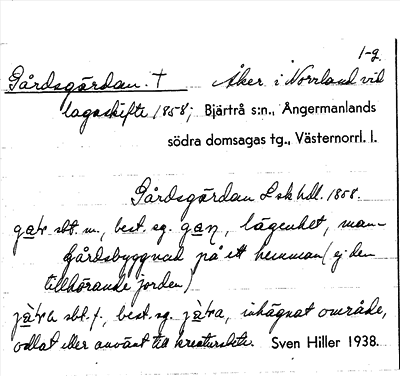 1-g.
Gårdsgärdan. † Åker i Norrland vid
lagaskifte 1858; Bjärtrå s:n., Ångermanlands
södra domsagas tg., Västernorrl. l.
Gårdsgärdan L sk hdl. 1858.
sbt. m., best. sg. lägenhet, man-
gårdsbyggnad på ett hemman (ej den
tillhörande jorden)
sbt. f., best. sg. inhägnat område,
odlat eller använt till kreatursbete Sven Hiller 1938.